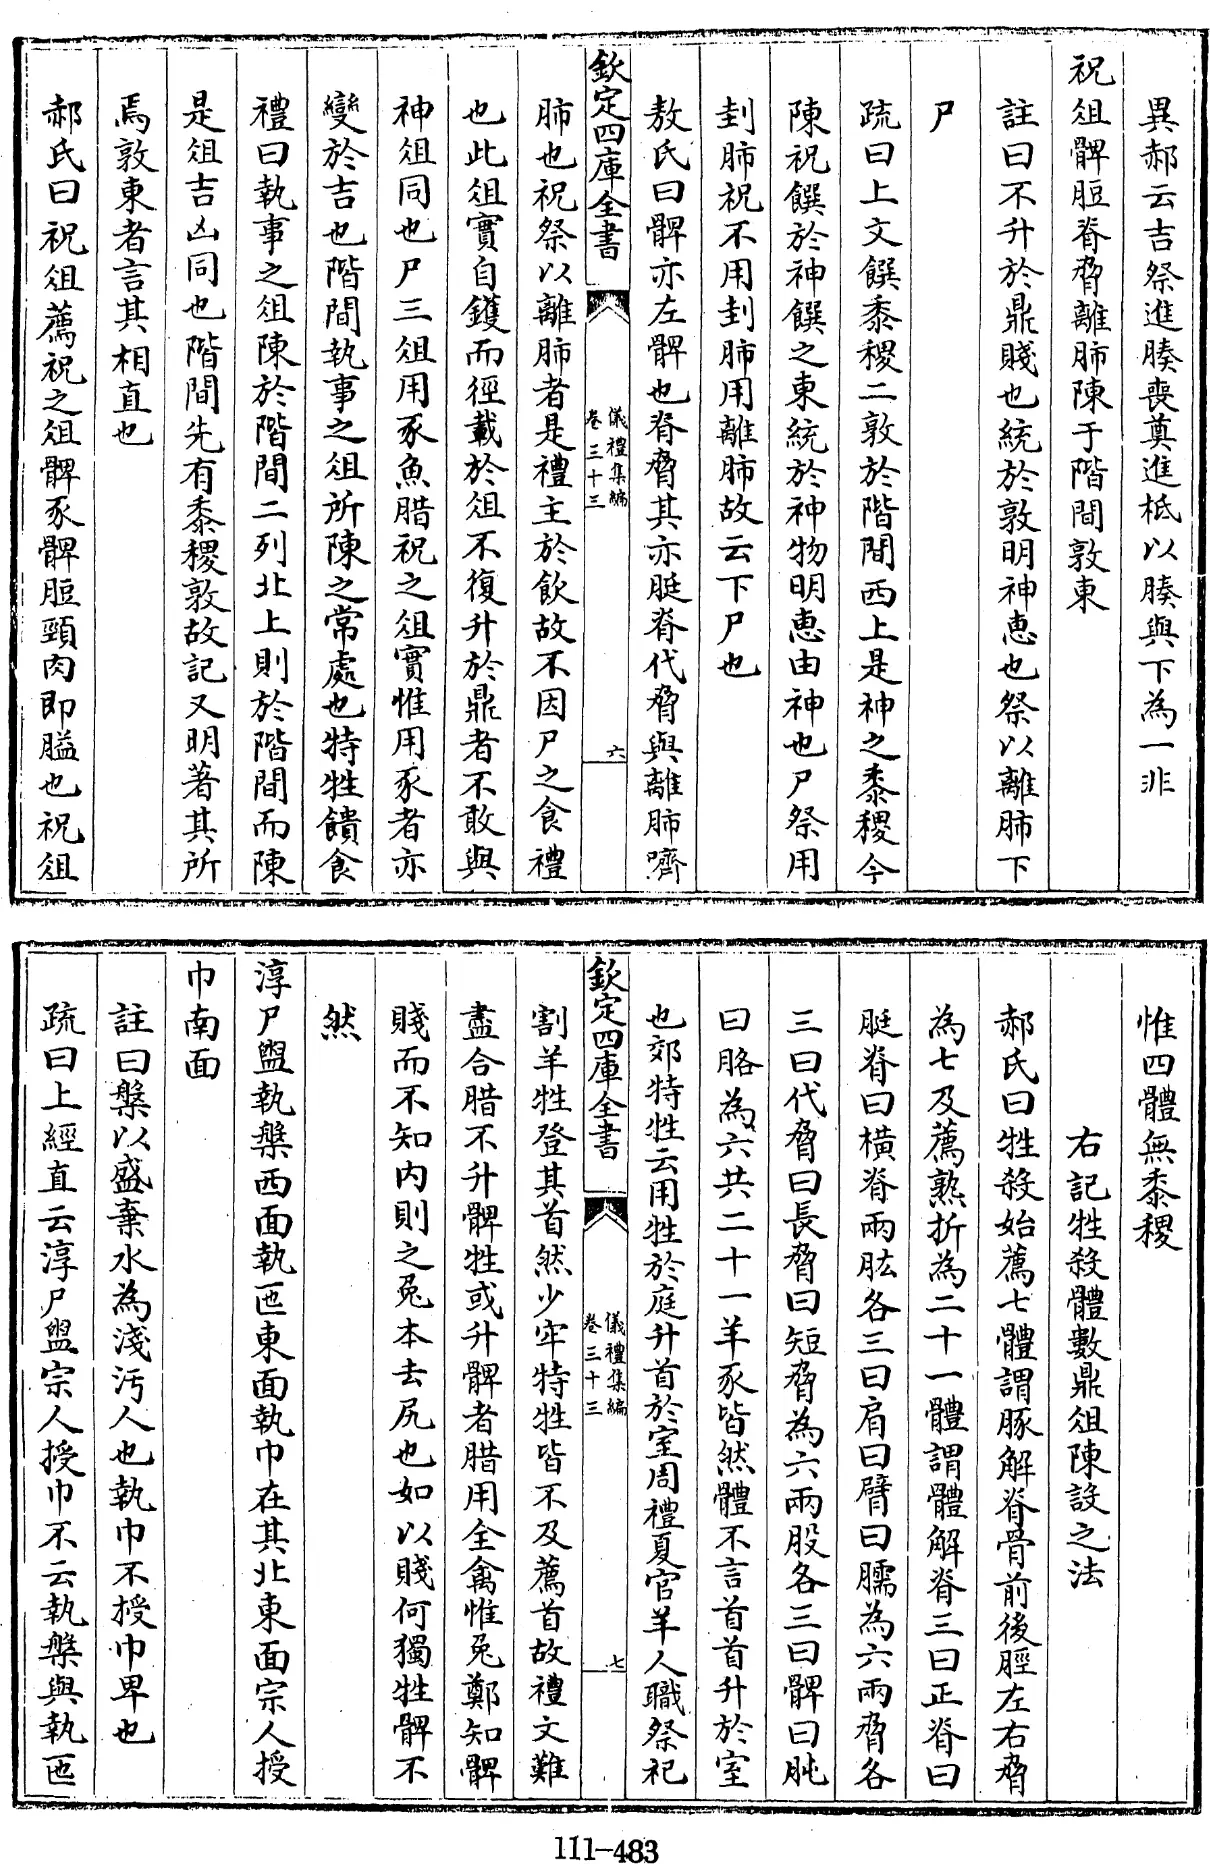 異郝云吉祭進腠喪奠進柢以腠與下為一非
祝俎髀脰脊脅離肺陳于階間敦東
註曰不升於鼎賤也統於敦明神惠也祭以離肺下
尸
疏曰上文饌黍稷二敦於階間西上是神之黍稷今
陳祝饌於神饌之東統於神物明惠由神也尸祭用
刲肺祝不用刲肺用離肺故云下尸也
敖氏曰髀亦左髀也脊脅其亦脡脊代脅與離肺嚌
欽定四庫全書
儀禮集編
卷三十三
六
肺也祝祭以離肺者是禮主於飲故不因尸之食禮
也此俎實自鑊而徑載於俎不復升於鼎者不敢與
神俎同也尸三俎用豕魚腊祝之俎實惟用豕者亦
變於吉也階間執事之俎所陳之常處也特牲饋食
禮曰執事之俎陳於階間二列北上則於階間而陳
是俎吉凶同也階間先有黍稷敦故記又明著其所
焉敦東者言其相直也
郝氏曰祝俎薦祝之俎髀豕髀脰頸肉即膉也祝俎
惟四體無黍稷
右記牲殺體數鼎俎陳設之法
郝氏曰牲殺始薦七體謂豚解脊骨前後脛左右脅
為七及薦熟折為二十一體謂體解脊三曰正脊曰
脡脊曰橫脊兩肱各三曰肩曰臂曰臑為六兩脅各
三曰代脅曰長脅曰短脅為六兩股各三曰髀曰肫
曰胳為六共二十一羊豕皆然體不言首首升於室
也郊特牲云用牲於庭升首於室周禮夏官羊人職祭祀
欽定四庫全書
儀禮集編
卷三十三
七
割羊牲登其首然少牢特牲皆不及薦首故禮文難
盡合腊不升髀牲或升髀者腊用全禽惟兔鄭知髀
賤而不知內則之兔本去尻也如以賤何獨牲髀不
然
淳尸盥執槃西面執匜東面執巾在其北東面宗人授
巾南面
註曰槃以盛棄水為淺汚人也執巾不授巾卑也
疏曰上經直云淳尸盥宗人授巾不云執槃與執匜
111-483